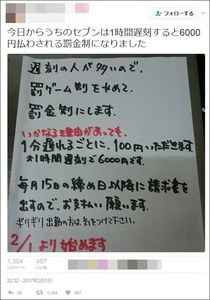 フォローする
今日からうちのセブンは1時間遅刻すると6000
円払わされる罰金制になりました
遅刻の人が多いので、
罰ゲーム制を求めて、
罰金制にします。
いかなる理由があっても、
1分遅れるごとに、100円いただきます
*1時間遅刻で6000円です。
毎月15日の締め日以降に請求書を
出すので、お支払い願います。
ギリギリ出勤の方は、気をつけて下さい。
2/1より始めます
リツイート
いいね
22:32 - 2017年2月1日